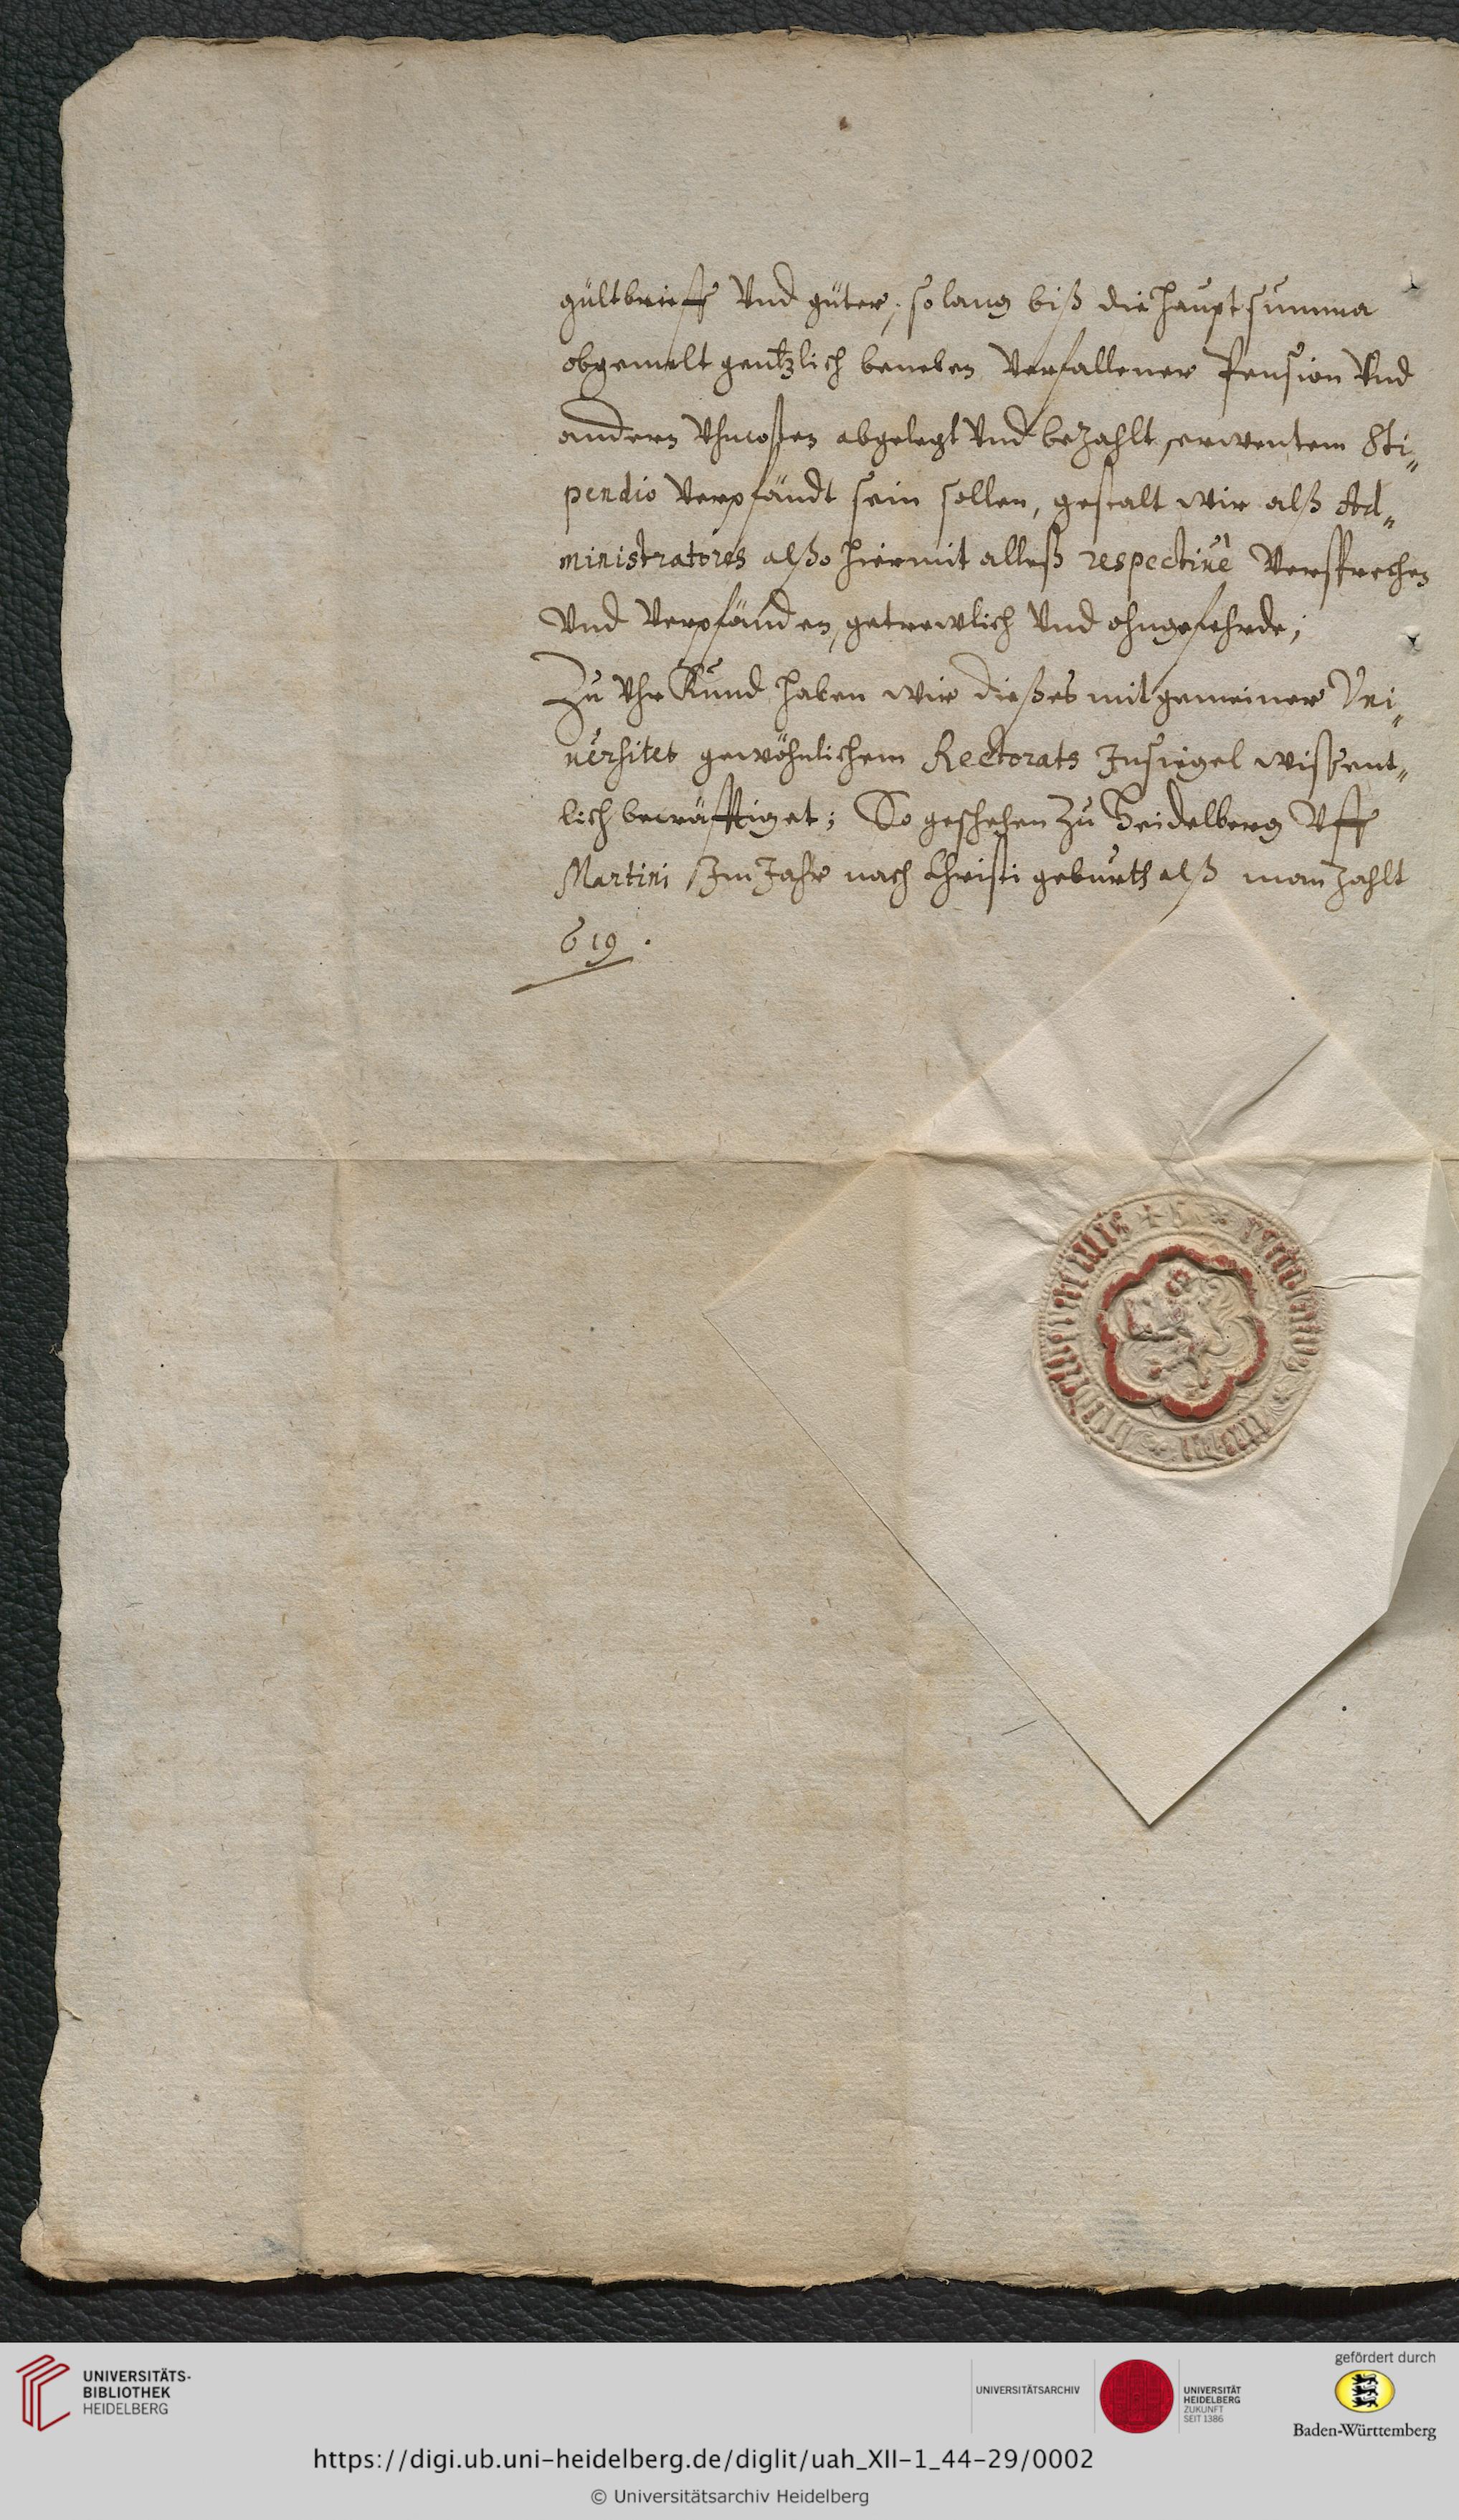 gültbrieff Vnd güter, so lang biß die haupt summa
obgemelt gentzlich beneben Verfallener Pension Vnd
andern Vhncosten abgelegt Vnd bezahlt, Sti„
pendio Verpfändt sein sollen, gestalt wir alß Ad„
ministratores alßo hiermit alleß respectivè Versprechen
Vnd Verpfänden, getrewlich Vnd ohngefehrde;
Zu Vhr Kund haben wir dießes mit gemeiner Vni„
versitet gewöhnlichem Rectorats Insiegel wißent„
lich becräfftiget; So geschehen zu Heidelberg Vff
Martini Im Jahr nach Christi geburth alß man zahlt
619.
UNIVERSITÄTS-
BIBLIOTHEK
HEIDELBERG
UNIVERSITÄTSARCHIV
UNIVERSITÄT
HEIDELBERG
ZUKUNFT
SEIT 1386
gefördert durch
Baden-Württemberg
https://digi.ub.uni-heidelberg.de/diglit/uah_XII-1_44-29/0002
© Universitätsarchiv Heidelberg